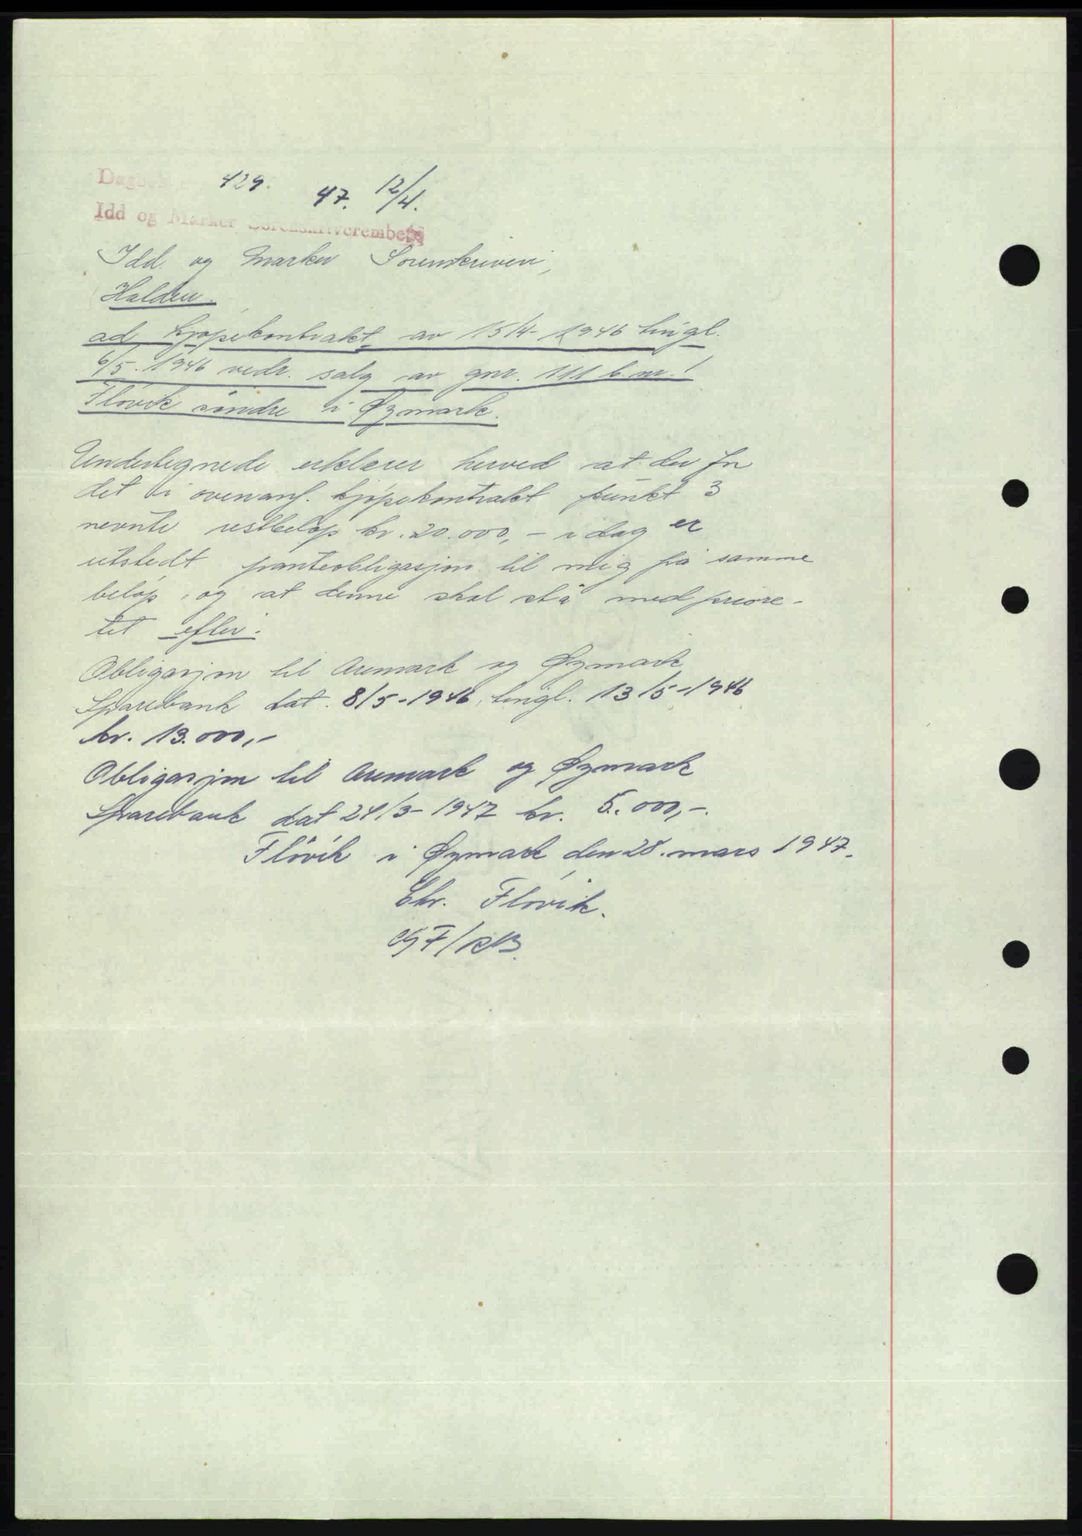 Dagbok 429. 47. 12/4.
Idd og Marker Sorenskriverembede
Idd og Marker Sorenskriveri,
Halden.
ad kjøpekontrakt av 15/4-1946 tingl.
6/5.1946 vedr. salg av gnr. 111 b.nr. 1
Fløvik søndre i Øymark.
Undertegnede erklærer herved at der for
det i ovenanf. kjøpekontrakt punkt 3
nevnte restbeløp kr. 20.000,- i dag er
utstedt panteobligasjon til mig på samme
beløp, og at denne skal stå med priore-
tet efter:
Obligasjon til Aremark og Øymark
Sparebank dat. 8/5-1946, tingl. 13/5-1946
kr. 13.000,-
Obligasjon til Aremark og Øymark
Sparebank dat 24/3-1947 kr. 5.000,-.
Fløvik i Øymark, den 28. mars 1947.
Chr. Fløvik.